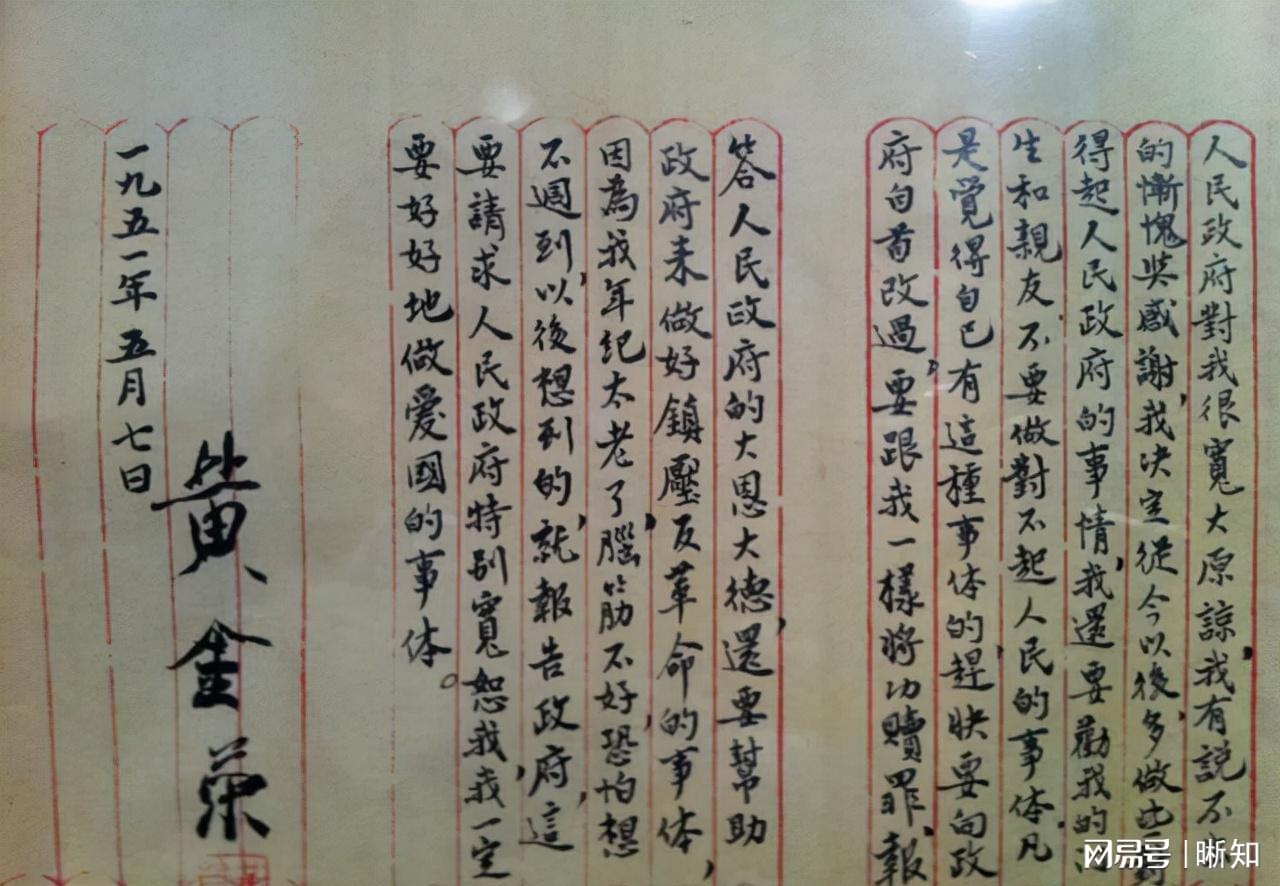 人民政府對我很寬大原諒，我有説不
的慚愧與感謝，我决定從今以後，多做
得起人民政府的事情，我還要勸我的
生和親友不要做對不起人民的事体，凡
是覺得自己有這種事体的，趕快要向政
府自首改過，要跟我一樣將功贖罪，報
答人民政府的大恩大德，還要幫助
政府来做好鎮壓反革命的事体，
因為我年纪太老了，腦筋不好，恐怕想
不週到，以後想到的，就報告政府，這
要請求人民政府特别寬恕我，我一定
要好好地做愛國的事体。
黄金荣
一九五一年五月七日
网易号 | 晰知